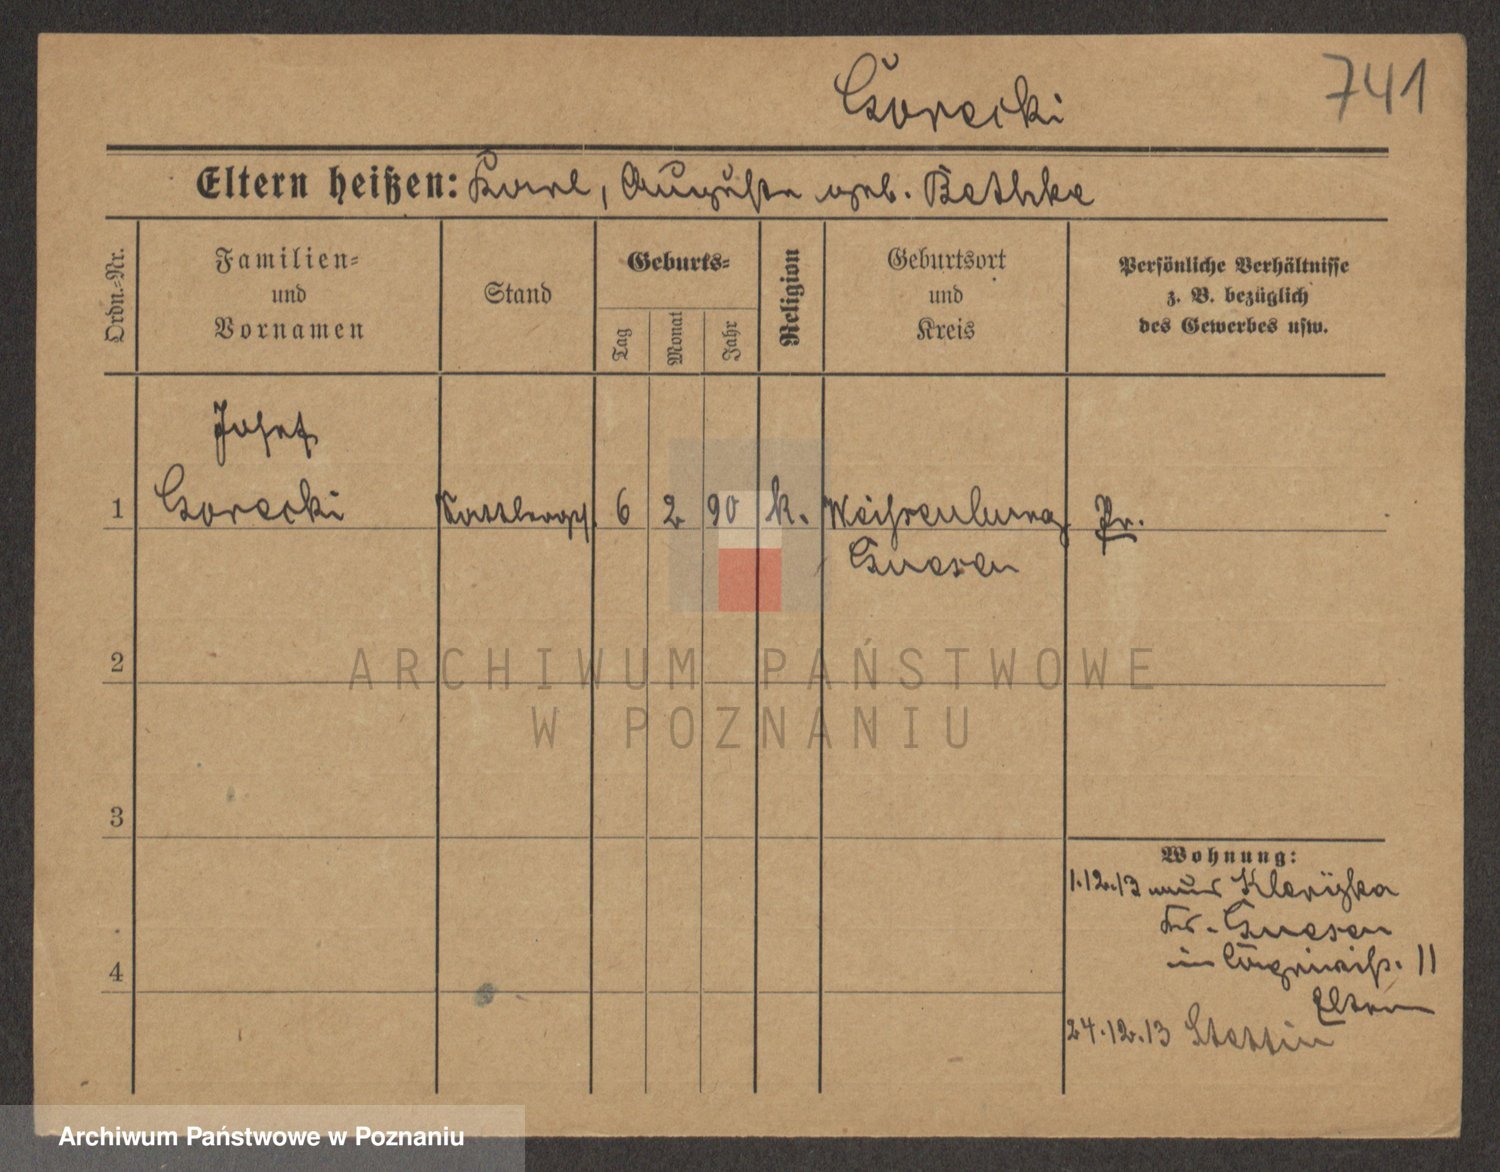 Gorecki
741
Eltern heißen: Karl, Auguste geb. Bethke
Ordn.-Nr.
Familien-
und
Vornamen
Stand
Geburts-
Tag
Monat
Jahr
Religion
Geburtsort
und
Kreis
Persönliche Verhältnisse
z. B. bezüglich
des Gewerbes usw.
Josef
1 Gorecki 6 2 90 k. Weißenburg Pr.
Gnesen
2
3
4
Wohnung:
1.12.13 aus
Kr. Gnesen
11
Eltern
24.12.13 Stettin
ARCHIWUM PAŃSTWOWE
W POZNANIU
Archiwum Państwowe w Poznaniu